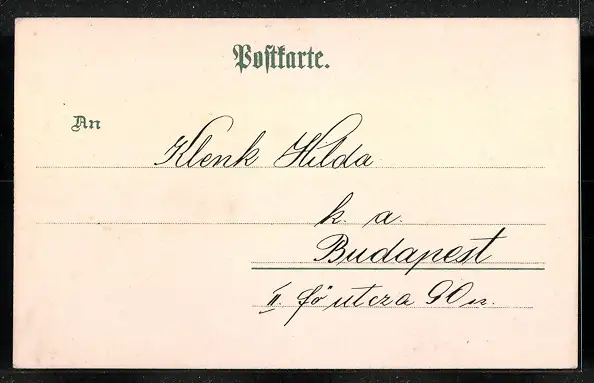 Postkarte.
An
Klenk Hilda
k. a.
Budapest
II. fő utcza 90 sz.